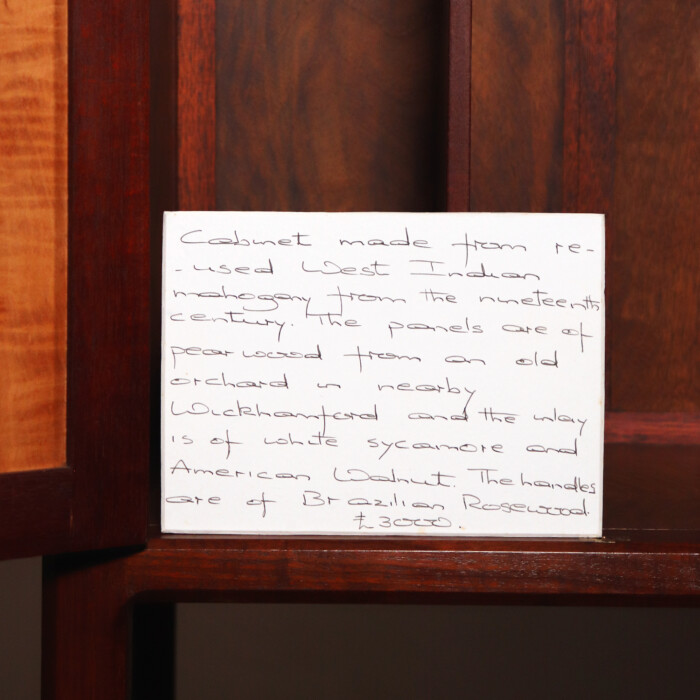 Cabinet made from re-
-used West Indian
mahogany from the nineteenth
century. The panels are of
pearwood from an old
orchard in nearby
Wickhamford and the inlay
is of white sycamore and
American Walnut. The handles
are of Brazilian Rosewood.
£3000.